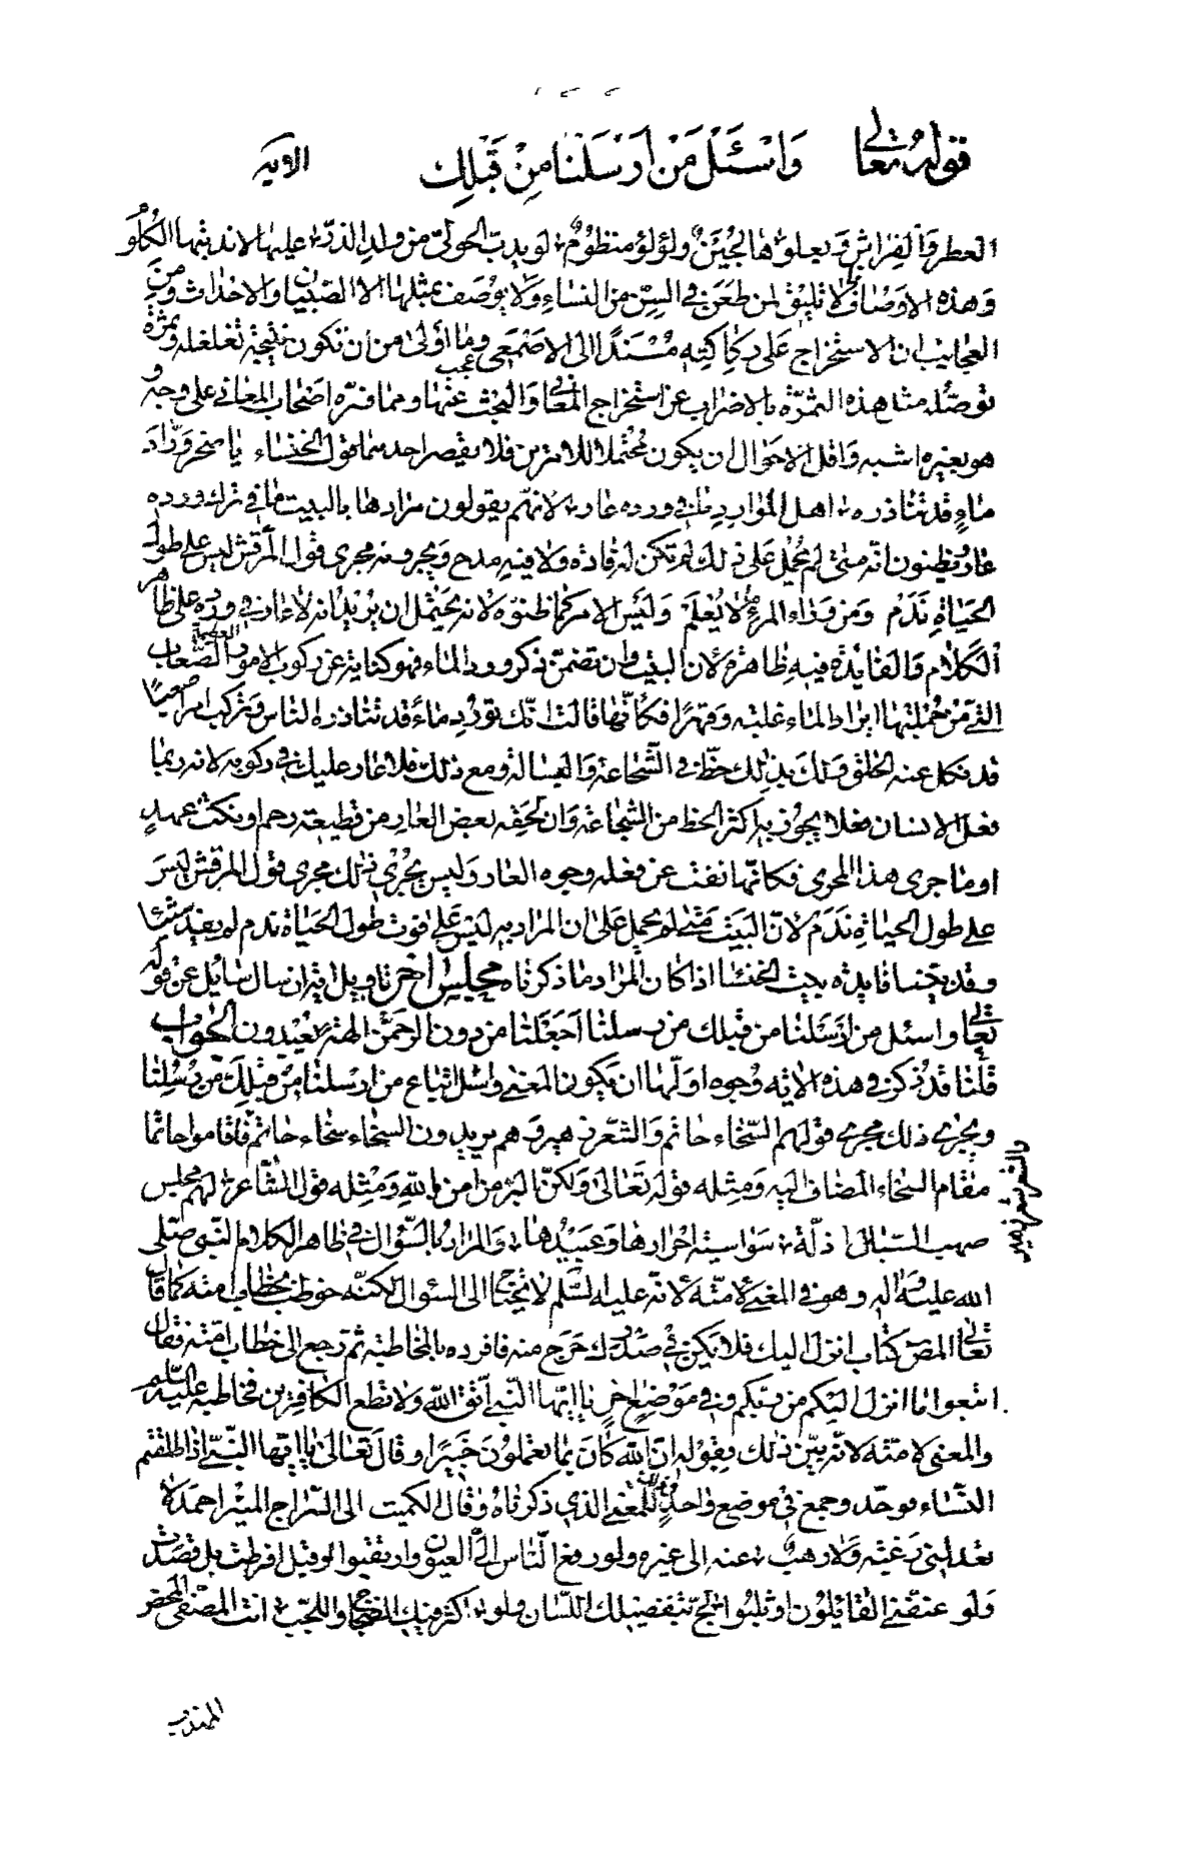 قوله تعالى وَاسْئَلْ مَنْ اَرْسَلْنَا مِنْ قَبْلِك الايه
العطر وَالفراش وَيعلوها لجُيَنٌ ولؤلؤ منظومٌ لو يدبّ الحولىّ من ولد الذرّ عليها لاندبتها الكلُو
وَهذه الاوصاف لا تليق لمن طعَن فى السِنّ من النسَاء وَلا يوُصَف بمثلها الا الصّبيان والاحداث ومن
العجايب ان الاستخراج عَلى ركاكته مُسْنَدًا الى الاصْمَعى وما اولىٰ من ان تكون نتيجة تغلغله وثمرَة
توصّله مثل هذه الثمرة بالاضراب عن استخراج المعانى وَالبحث عنها ومما فسّره اصْحاب المعانى على وجه و
هو بغيره اشبه وَاقل الاحوال ان يكون محتملا للامرين فلا يقصر احدهما قول الخنساء يا صخر ورّادَ
ماءٍ قد تناذره اهل الموارد ما فى ورده عار لانهم يقولون مرادها بالبيت ما فى ترك ورده
عار ويظنون انه متى لم يحمل عَلى ذلك لم تكن له فائدة ولا فيه مدح وَيجرونه مجرى قول المرقش ليس على طول
الحيَاة نَدَمْ وَمن وَرَاء المرءِ ما لا يُعْلَمْ وَلَيْسَ الامر كما ظنوّه لانه يحتمل ان يُريد انه لا عار فى ورده على ظاهر
الكلام وَالفايدة فيه ظاهرة لان البيت وان تضمن ذكر ورد الماء فهو كناية عن ركوب الامور العظيمة الصّعاب
التى من جملتها ايراد الماء غلبة وَقهرًا فكأنّها قالت انّك تورد ماءً قد تناذره الناس وَتركب امرا صعبًا
قد نكل عنه الخلق وَلك بذلك حظّ فى الشّجاعة وَالبسالة ومع ذلك فلا عار عليك فى ركوبه لانه ربما
فعل الانسان فعلا يحوز به اكثر الحظ من الشجاعة وَان لحقه بعض العار من قطيعة رحم او نكث عهدٍ
او ما جرى هذا المجرى فكانّها نفت عن فعله وجوه العار وَليس يجرى ذلك مجرى قول المرقش ليسَ
على طول الحياة نَدَم لانّ البَيت متى لم يحمل عَلى ان المراد به ليس على فوت طول الحَيَاة ندم لم يفد شيئا
وقد بيّنا فايدة بيت الخنسا اذا كان المراد ما ذكرناه مجلِس اخر تاويل اية ان سال سَايل عن قوله
تعالى واسئل من ارسَلنا من قبلك من رسلنا اَجَعَلنا من دون الرحمٰن الهة يُعْبَدون الجواب
قلنا قد ذكر فى هذه الايه وُجوه اوّلها ان يكون المعنى وَاسئل اتباع من ارسلنا من قبلك من رسُلنا
ويجرى ذلك مجرى قولهم السّخاء حاتم وَالشعر زهير وَهم يريدون السّخاء سخاء حاتم فاقاموا حاتما
والشعر شعر زهير
مقام السّخاء المضاف اليه وَمِثله قوله تَعَالىٰ وَلكنّ البرّ من امن بالله وَمِثله قول الشّاعر لهم مجلس
صهب السّبال اذلّة سَواسية احرارها وَعبيدها وَالمراد بالسّؤال فى ظاهر الكلام النبى صلى
الله عليه وَاله وهو فى المعنى لامّته لانه عليه السّلم لا يحتاج الى السئوال لكنّه خوطب بخطاب امته كما قال
تعالى المص كتاب انزل اليك فلا يكن فى صدرك حَرَج منه فافرده بالمخاطبة ثم رَجع الى خطاب امّته فقال
اتبعوا ما انزل اليكم من ربكم وفى مَوْضِعٍ اخرٍ يا ايّها النّبى اتّق الله ولا تطع الكافرين فخاطبه عليه السّلم
والمعنى لامّته لانّه بيّن ذلك بقوله ان الله كان بما تعملون خَبيرًا وقال تعَالىٰ يا ايّها النّبى اذا طلقتم
النّسَاء فوحّد وجمع فى موضع واحدٍ للمعنى الذى ذكرناه وقال الكميت الى السّراج المنير احمدَ لا
يعدلنى رَغبَة وَلا رهب عنه الى غيره ولو رفع النّاس الىّ العيون وارتقبوا لو قيل افرطت بل قصَدت
وَلو عنفنى القائلون او ثلبوا لجّ بتفضيلك اللّسان ولو اكثر فيك الضجاج واللجب انت المصفى المحض
المهذب